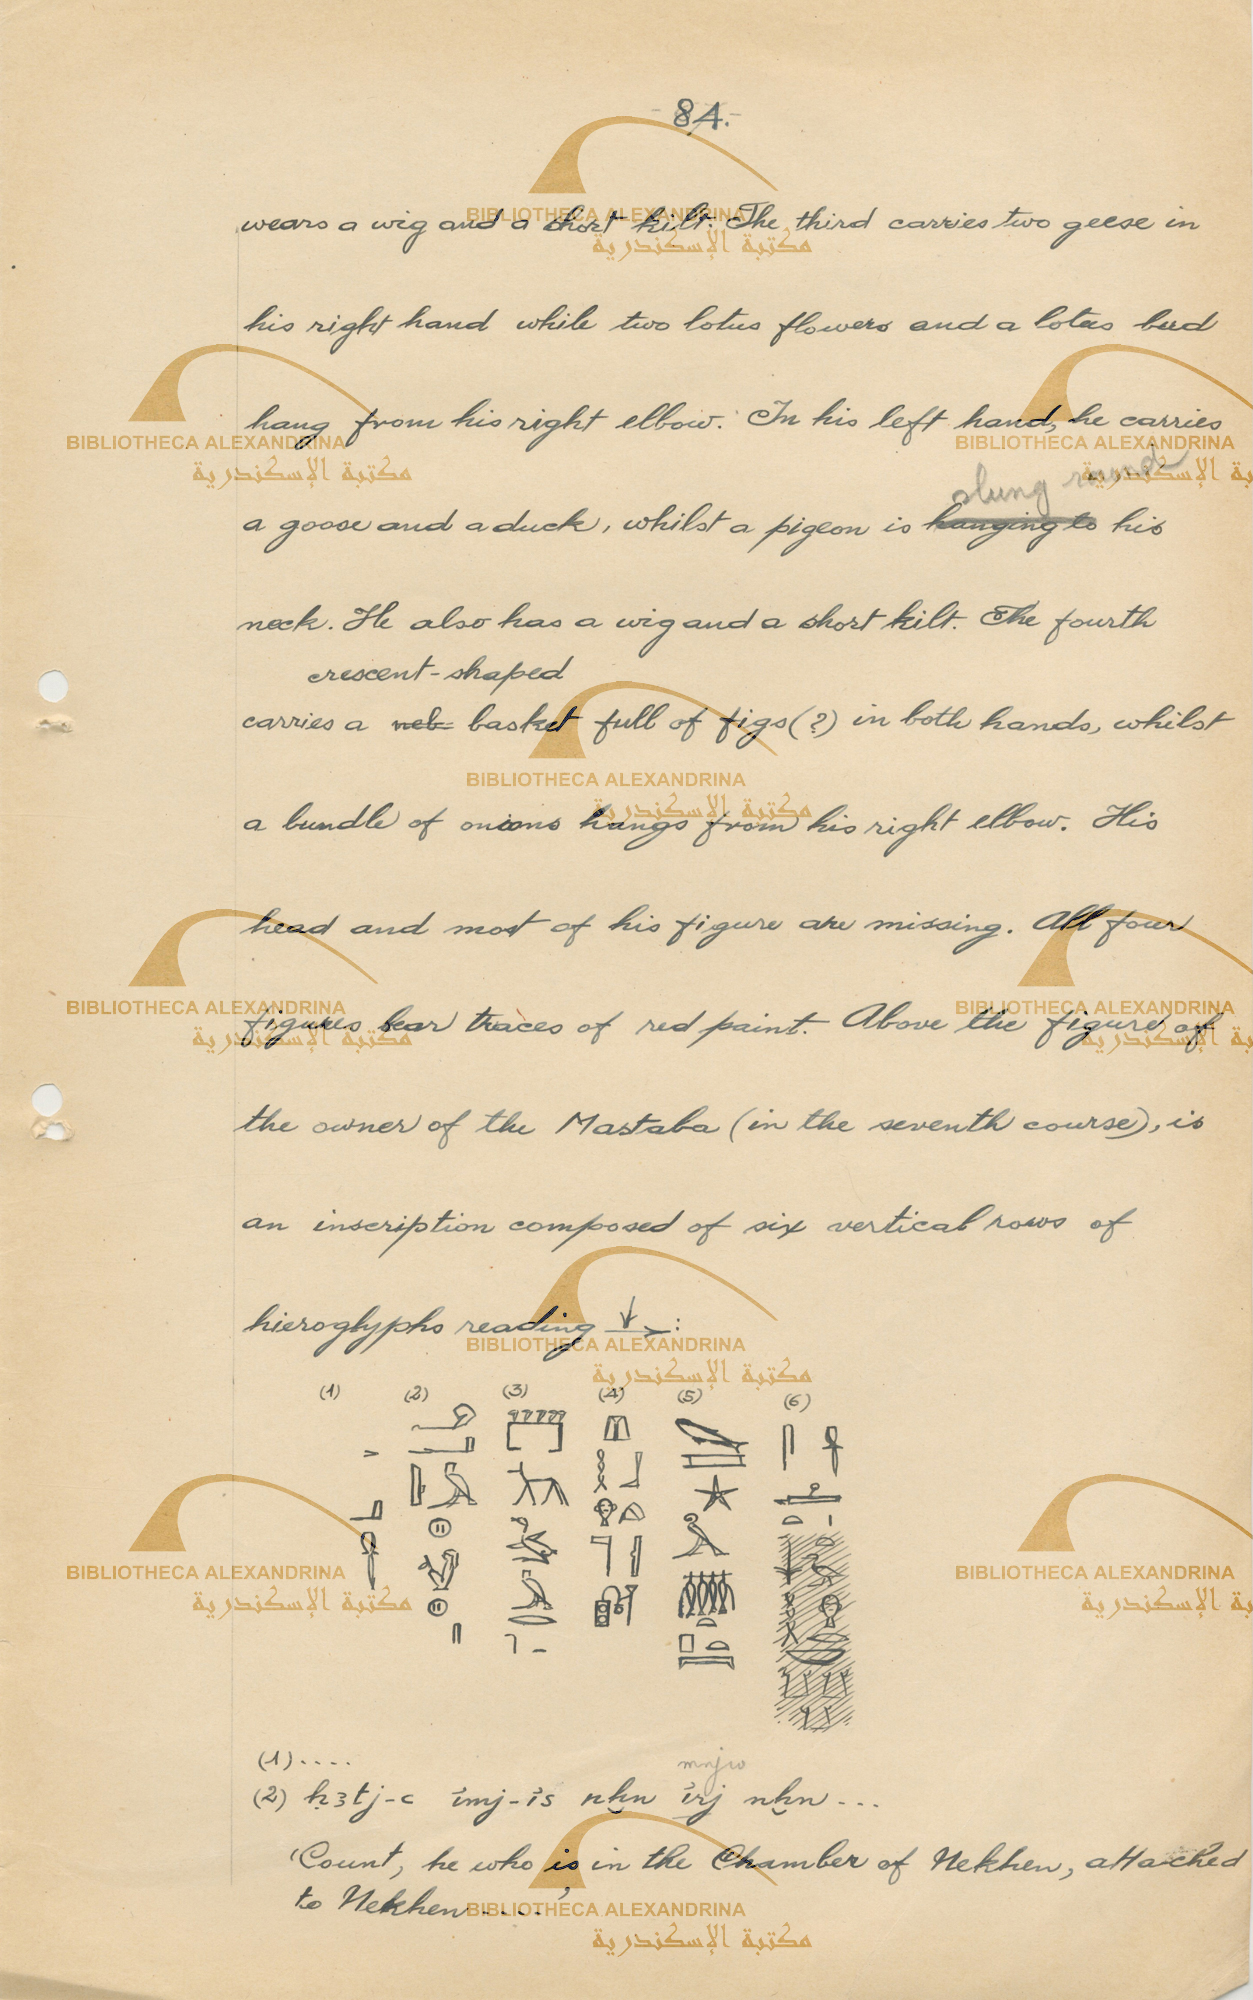 84.
wears a wig and a short kilt. The third carries two geese in
his right hand while two lotus flowers and a lotus bud
hang from his right elbow. In his left hand, he carries
slung round
a goose and a duck, whilst a pigeon is hanging to his
neck. He also has a wig and a short kilt. The fourth
crescent-shaped
carries a neb basket full of figs (?) in both hands, whilst
a bundle of onions hangs from his right elbow. His
head and most of his figure are missing. All four
figures bear traces of red paint. Above the figure of
the owner of the Mastaba (in the seventh course), is
an inscription composed of six vertical rows of
hieroglyphs reading ↓→:
(1) (2) (3) (4) (5) (6)
(1) ....
mnjw
(2) ḥꜣtj-c ỉmj-ỉs nḫn ỉrj nḫn ...
'Count, he who is in the Chamber of Nekhen, attached
to Nekhen ....'
BIBLIOTHECA ALEXANDRINA
مكتبة الإسكندرية